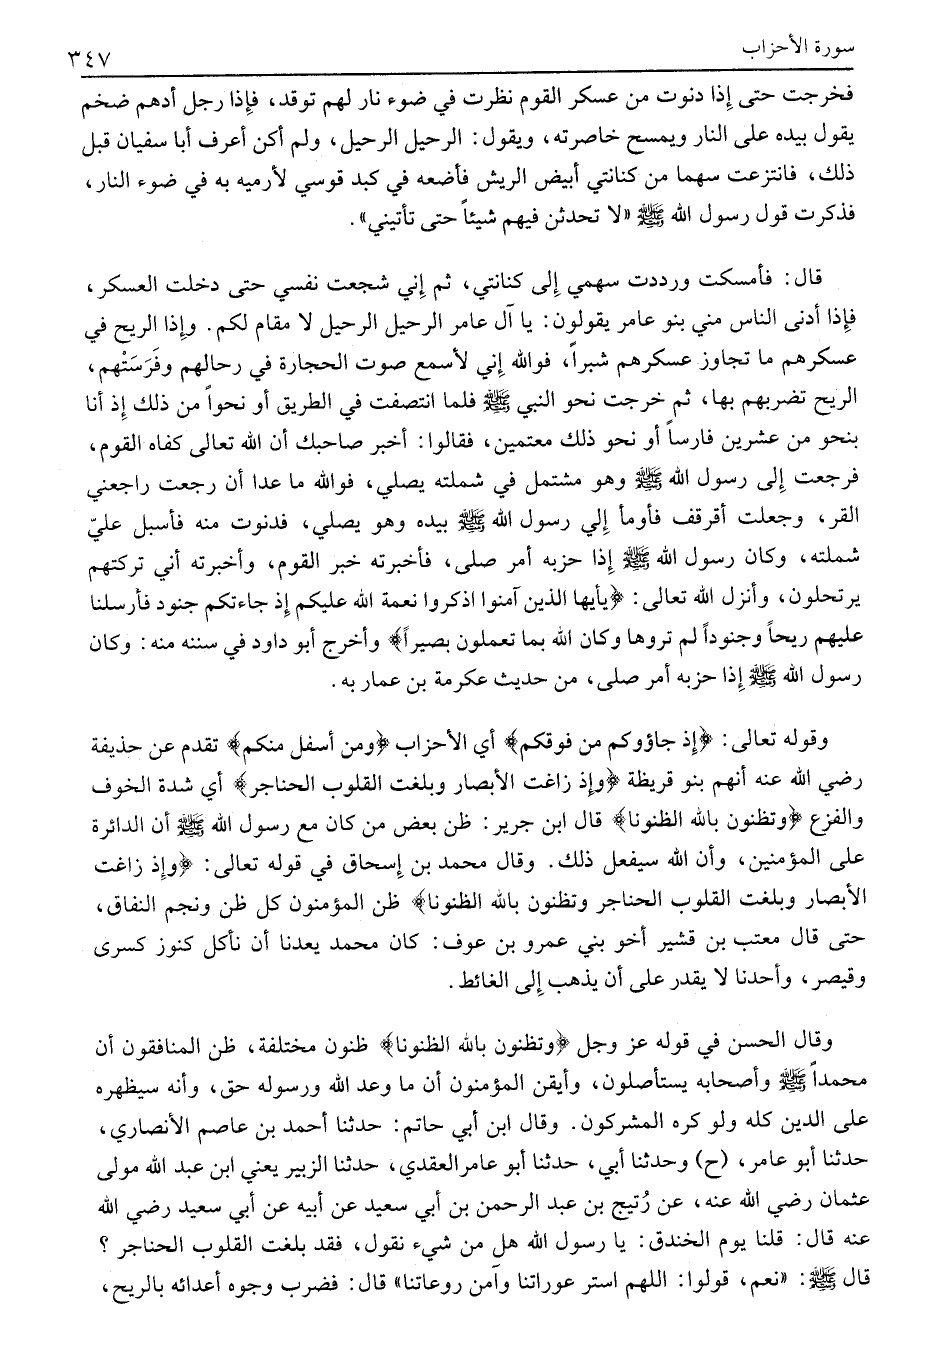 سورة الأحزاب ٣٤٧
فخرجت حتى إذا دنوت من عسكر القوم نظرت في ضوء نار لهم توقد، فإذا رجل أدهم ضخم
يقول بيده على النار ويمسح خاصرته، ويقول: الرحيل الرحيل، ولم أكن أعرف أبا سفيان قبل
ذلك، فانتزعت سهما من كنانتي أبيض الريش فأضعه في كبد قوسي لأرميه به في ضوء النار،
فذكرت قول رسول الله ﷺ «لا تحدثن فيهم شيئاً حتى تأتيني».
قال: فأمسكت ورددت سهمي إلى كنانتي، ثم إني شجعت نفسي حتى دخلت العسكر،
فإذا أدنى الناس مني بنو عامر يقولون: يا آل عامر الرحيل الرحيل لا مقام لكم. وإذا الريح في
عسكرهم ما تجاوز عسكرهم شبراً، فوالله إني لأسمع صوت الحجارة في رحالهم وفَرَسَتْهم،
الريح تضربهم بها، ثم خرجت نحو النبي ﷺ فلما انتصفت في الطريق أو نحواً من ذلك إذ أنا
بنحو من عشرين فارساً أو نحو ذلك معتمين، فقالوا: أخبر صاحبك أن الله تعالى كفاه القوم،
فرجعت إلى رسول الله ﷺ وهو مشتمل في شملته يصلي، فوالله ما عدا أن رجعت راجعني
القر، وجعلت أقرقف فأومأ إلي رسول الله ﷺ بيده وهو يصلي، فدنوت منه فأسبل عليّ
شملته، وكان رسول الله ﷺ إذا حزبه أمر صلى، فأخبرته خبر القوم، وأخبرته أني تركتهم
يرتحلون، وأنزل الله تعالى: ﴿يأيها الذين آمنوا اذكروا نعمة الله عليكم إذ جاءتكم جنود فأرسلنا
عليهم ريحاً وجنوداً لم تروها وكان الله بما تعملون بصيراً﴾ وأخرج أبو داود في سننه منه: وكان
رسول الله ﷺ إذا حزبه أمر صلى، من حديث عكرمة بن عمار به.
وقوله تعالى: ﴿إذ جاؤوكم من فوقكم﴾ أي الأحزاب ﴿ومن أسفل منكم﴾ تقدم عن حذيفة
رضي الله عنه أنهم بنو قريظة ﴿وإذ زاغت الأبصار وبلغت القلوب الحناجر﴾ أي شدة الخوف
والفزع ﴿وتظنون بالله الظنونا﴾ قال ابن جرير: ظن بعض من كان مع رسول الله ﷺ أن الدائرة
على المؤمنين، وأن الله سيفعل ذلك. وقال محمد بن إسحاق في قوله تعالى: ﴿وإذ زاغت
الأبصار وبلغت القلوب الحناجر وتظنون بالله الظنونا﴾ ظن المؤمنون كل ظن ونجم النفاق،
حتى قال معتب بن قشير أخو بني عمرو بن عوف: كان محمد يعدنا أن نأكل كنوز كسرى
وقيصر، وأحدنا لا يقدر على أن يذهب إلى الغائط.
وقال الحسن في قوله عز وجل ﴿وتظنون بالله الظنونا﴾ ظنون مختلفة، ظن المنافقون أن
محمداً ﷺ وأصحابه يستأصلون، وأيقن المؤمنون أن ما وعد الله ورسوله حق، وأنه سيظهره
على الدين كله ولو كره المشركون. وقال ابن أبي حاتم: حدثنا أحمد بن عاصم الأنصاري،
حدثنا أبو عامر، (ح) وحدثنا أبي، حدثنا أبو عامر العقدي، حدثنا الزبير يعني ابن عبد الله مولى
عثمان رضي الله عنه، عن رُتيج بن عبد الرحمن بن أبي سعيد عن أبيه عن أبي سعيد رضي الله
عنه قال: قلنا يوم الخندق: يا رسول الله هل من شيء نقول، فقد بلغت القلوب الحناجر ؟
قال ﷺ: «نعم، قولوا: اللهم استر عوراتنا وآمن روعاتنا» قال: فضرب وجوه أعدائه بالريح،